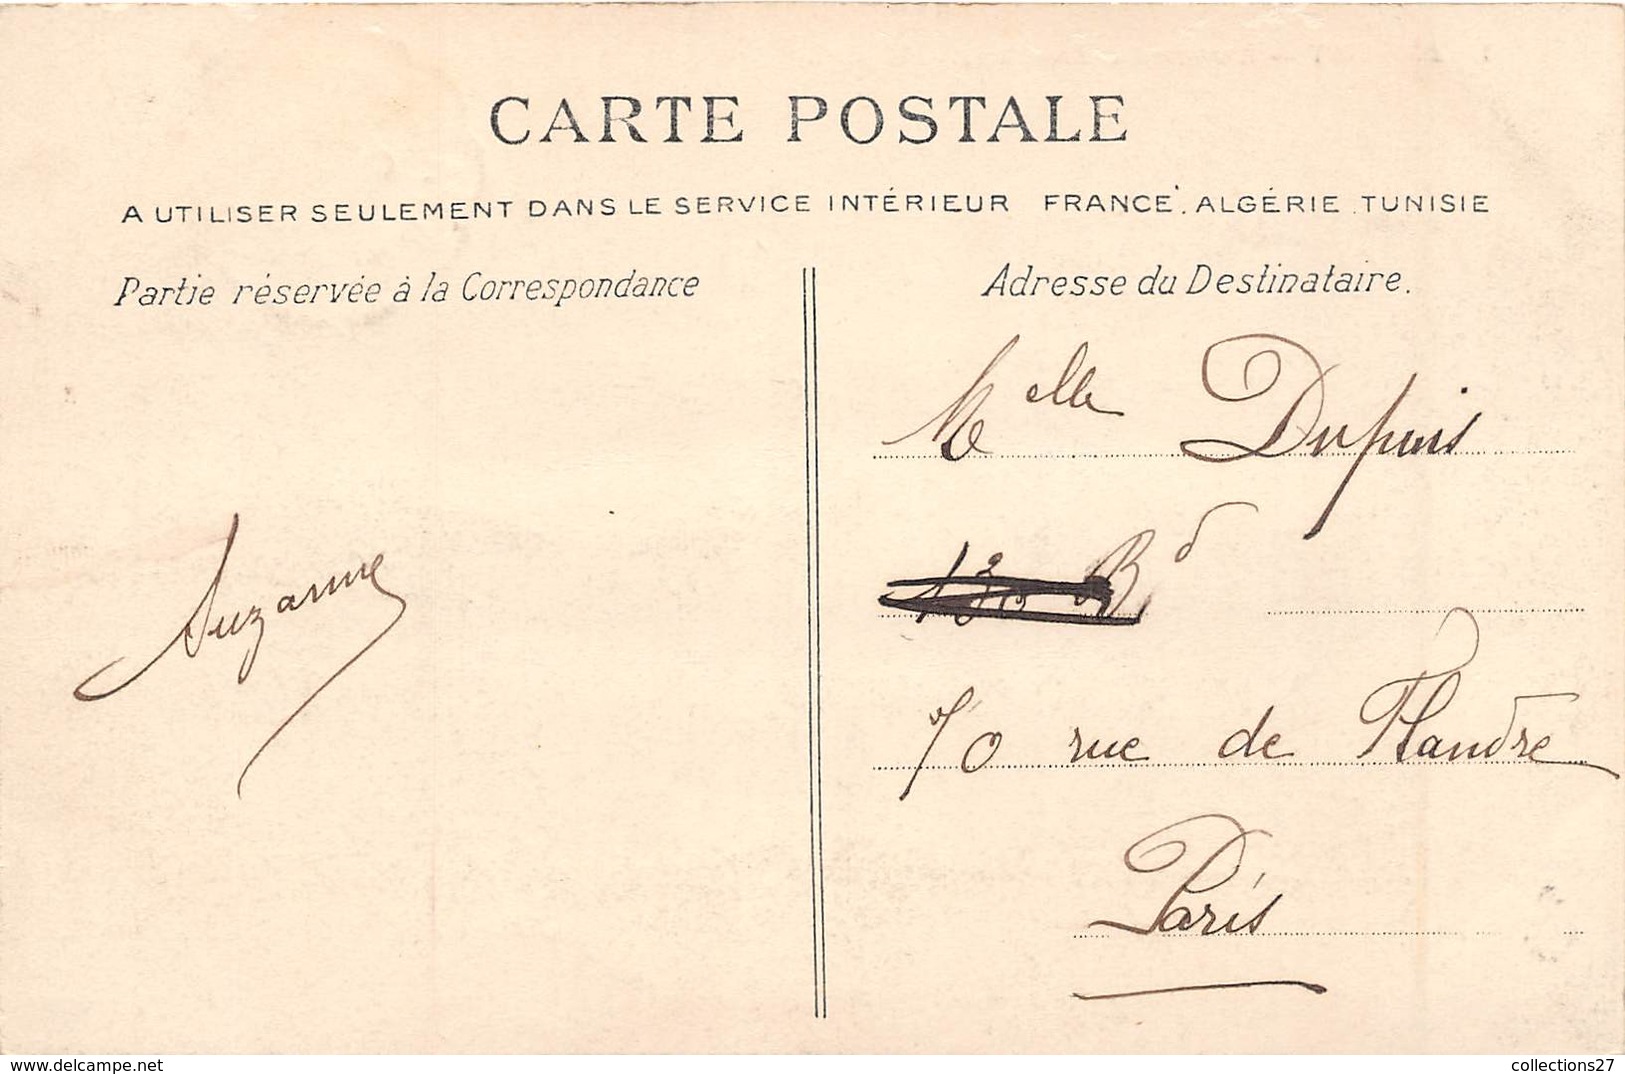 CARTE POSTALE
A UTILISER SEULEMENT DANS LE SERVICE INTÉRIEUR FRANCE. ALGÉRIE. TUNISIE
Partie réservée à la Correspondance
Suzanne
Adresse du Destinataire.
Melle Dupuis
Bd
70 rue de Flandre
Paris
www.delcampe.net
collections27